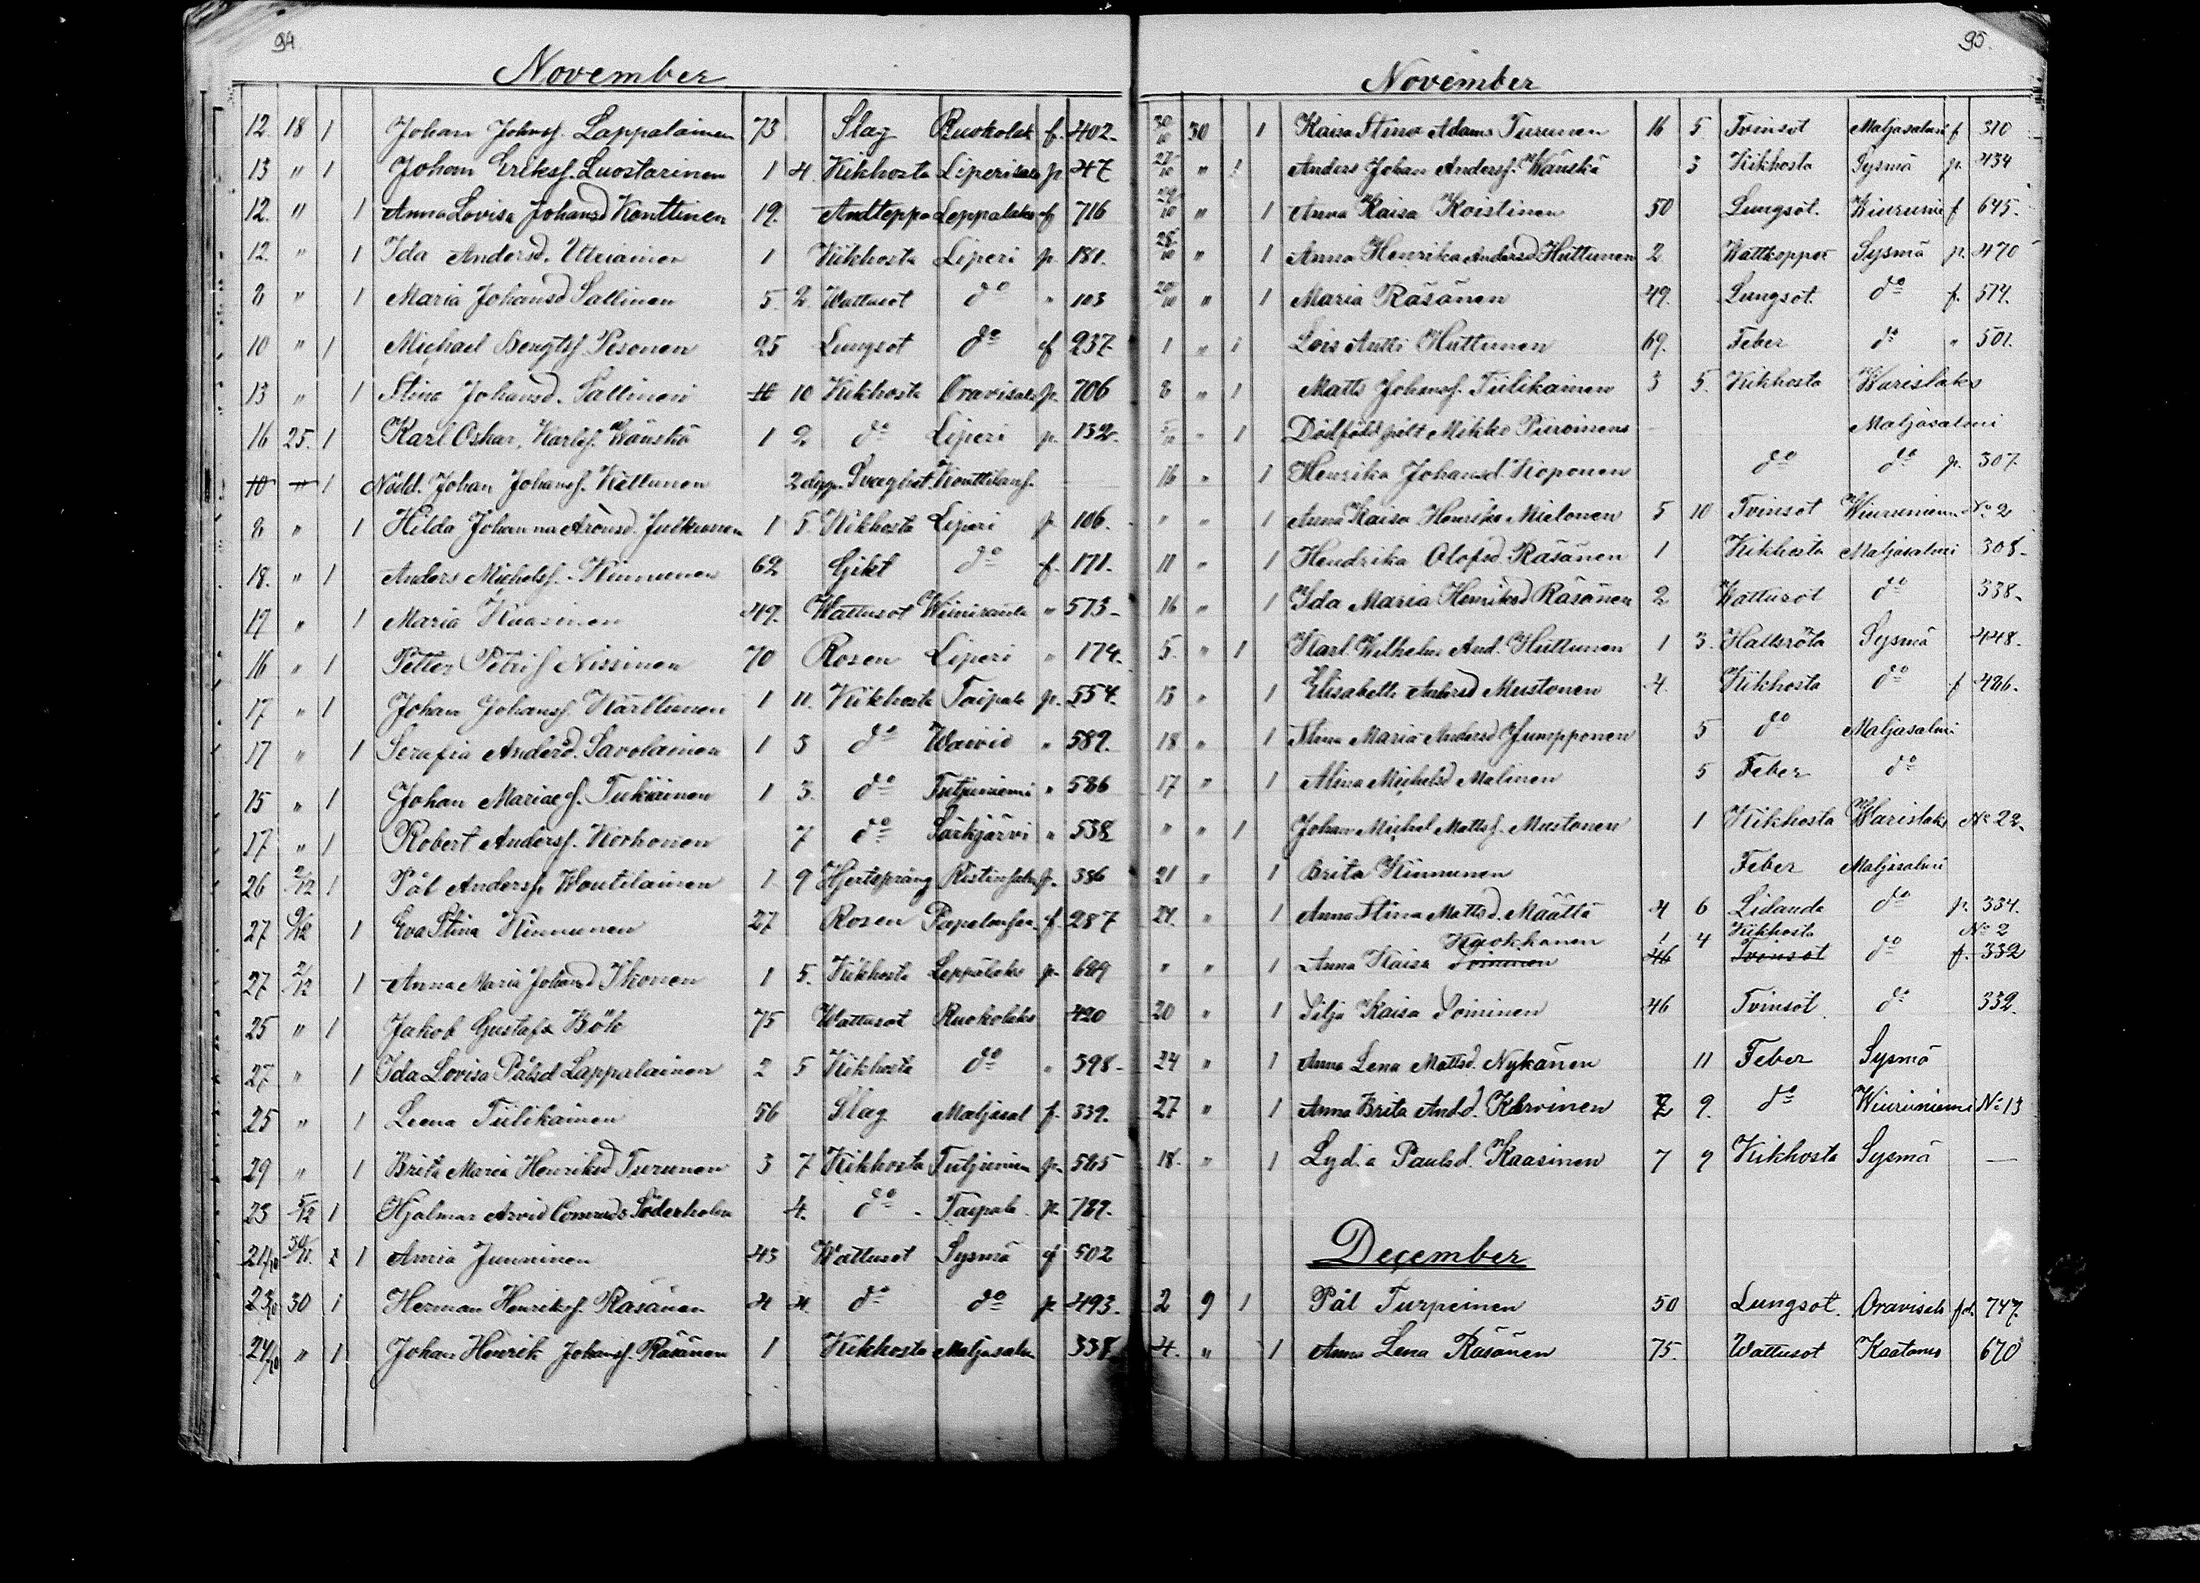 94
November
12. 18 1 Johan Johansf. Lappalainen 73 Slag Ruokolak f. 402.
13 " 1 Johan Eriksf. Luostarinen 1 4. Kikhosta Liperi p 47
12. " 1 Anna Lovisa Johansd Konttinen 19. Andteppa Leppälaks f 716
12. " 1 Ida Andersd. Utriainen 1 Kikhosta Liperi p 181.
8 " 1 Maria Johansd Sallinen 5. 2 Wattusot do " 103
10 " 1 Michael Bengtsf. Pesonen 25 Lungsot do f 237.
13 " 1 Stina Johansd. Sallinen 10 Kikhosta Oravisalo p. 706
16 25. 1 Karl Oskar, Karlsf. Wänskä 1 2 do Liperi p. 132.
10 " 1 Nödd. Johan Johansf. Kettunen 2 dagar Svaghet Konttilans.
8 " 1 Hilda Johanna Aronsd. Julkunen 1 5. Kikhosta Liperi p 106.
18. " 1 Anders Michelsf. Kinnunen 62 Gikt do f. 171.
17 " 1 Maria Kaasinen 49. Wattusot Wiiniranta " 573
16 " 1 Petter Petrisf Nissinen 70 Rosen Liperi " 174.
17 " 1 Johan Johansf. Karttunen 1 11. Kikhosta Taipale p. 554.
17 " 1 Serafia Andersd. Savolainen 1 3 do Waivio " 589.
15 " 1 Johan Mariaef. Tukiainen 1 3. do Tutjuniemi " 586
17 " 1 Robert Andersf. Korhonen 7 do Särkjärvi " 538
26 2/12 1 Pål Andersf. Woutilainen 1. 9 Hjertsprång Ristinsalm p. 386
27 9/12 1 Eva Stina Kinnunen 27 Rosen f 287
27 2/12 1 Anna Maria Johansd Ikonen 1 5. Kikhosta Leppälaks p 689
25 " 1 Jakob Gustafs Böök 75 Wattusot Ruokolaks 420
27 " 1 Ida Lovisa Pålsd Lappalainen 2 5 Kikhosta do " 398
25 " 1 Leena Tiilikainen 56 Slag Maljasal f. 339.
29 " 1 Brita Maria Henriksd Turunen 3 7 Kikhosta Tutjunien p. 565
23 5/12 1 Hjalmar Arvid Conrads Söderholm 4. do Taipale p. 789.
21/10 30/11. 1 Anna Junninen 43 Wattusot Sysmä f 502
23/10 30 1 Herman Henriksf. Räsänen 4 4. do do p 493.
24/10 " 1 Johan Henrik Johansf. Räsänen 1 Kikhosta Maljasalm 338.
95.
November
30/10 30 1 Kaisa Stina Adams Turunen 16 5 Tvinsot Maljasalmi f 310
27/10 " 1 Anders Johan Andersf. Wänskä 3 Kikhosta Sysmä p. 434
29/10 " 1 Anna Kaisa Koistinen 50 Lungsot. Wiurunie f 645.
28/10 " 1 Anna Henrika Andersd Huttunen 2 Wattkoppor Sysmä p. 470
20/10 " 1 Maria Räsänen 49. Lungsot. do f. 514.
1 " 1 Lois Antti Huttunen 69. Feber do " 501.
8 " 1 Matts Johansf. Tiilikainen 3 5. Kikhosta Warislaks
" 1 Dödfödd pilt Mikko Piiroinens — Maljasalmi
16 " 1 Henrika Johansd. Koponen do do p. 307.
" " 1 Anna Kaisa Henriks Mielonen 5 10 Tvinsot Wiuruniemi No 2
11 " 1 Hendrika Olofsd. Räsänen 1 Kikhosta Maljasalmi 308.
16 " 1 Ida Maria Henriksd Räsänen 2 Wattusot do 338.
5. " 1 Karl Wilhelm And. Huttunen 1 3. Halsröta Sysmä 448.
13 " 1 Elisabeth Andersd Mustonen 4. Kikhosta do f 486.
18 " 1 Maria Andersd Jumpponen 5 do Maljasalmi
17 " 1 Alina Michelsd Malinen 5 Feber do
" " 1 Johan Michel Mattsf. Mustonen 1 Kikhosta Warislaks No 22.
21 " 1 Brita Kinnunen Feber Maljasalmi
24. " 1 Anna Stina Mattsd. Määttä 4 6 Lidande do p. 334.
Kuokkanen 1 4 Kikhosta No 2
" " 1 Anna Kaisa Soininen 46 Tvinsot do f. 332
20 " 1 Silja Kaisa Soininen 46 Tvinsot do 332.
24 " 1 Anna Lena Mattsd. Nykänen 11 Feber Sysmä
27 " 1 Anna Brita And.d. Karvinen 9. do Wiuruniemi No 13
18. " 1 Lydia Paulsd. Kaasinen 7 9 Kikhosta Sysmä —
December
2 9 1 Pål Turpeinen 50 Lungsot. Oravisalo fd. 747.
4. " 1 Anna Lena Räsänen 75. Wattusot Kaatamo 670